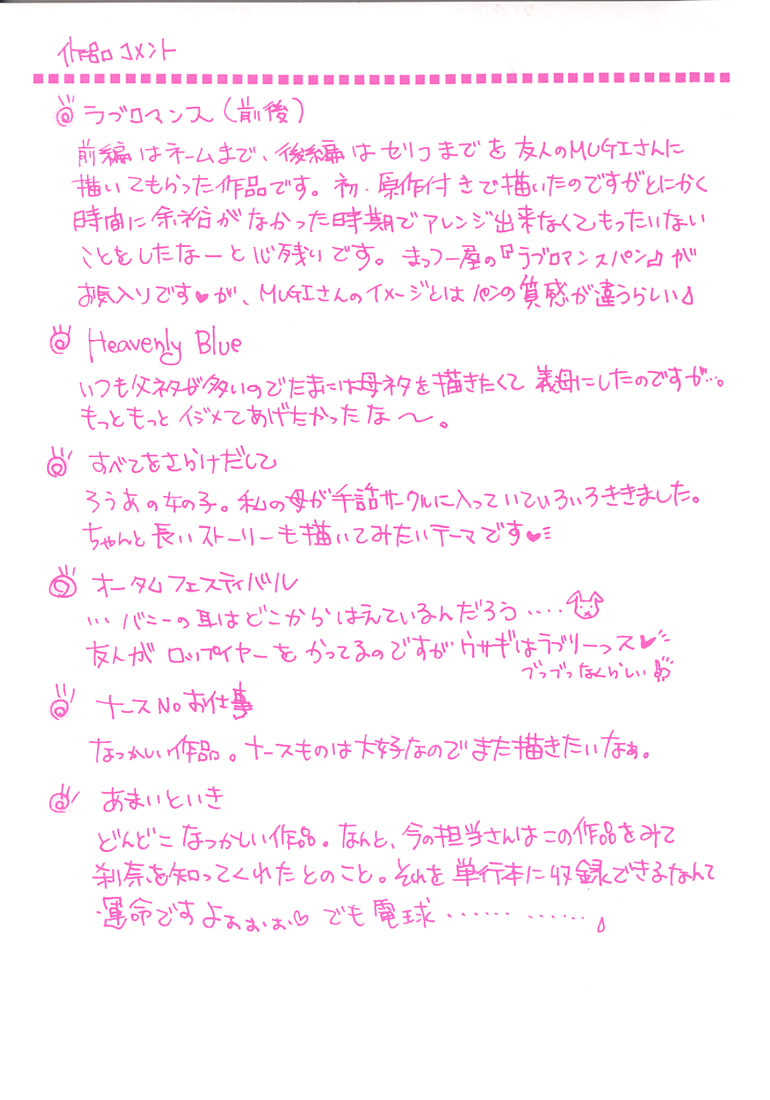 作品コメント
ラブロマンス(前後)
前編はネームまで、後編はセリフまでを友人のMUGIさんに
描いてもらった作品です。初・原作付きで描いたのですがとにかく
時間に余裕がなかった時期でアレンジ出来なくてもったいない
ことをしたなーと心残りです。まっつー屋の『ラブロマンスパン』が
お気入りです♥が、MUGIさんのイメージとはパンの質感が違うらしい
Heavenly Blue
いつも父ネタが多いのでたまには母ネタを描きたくて義母にしたのですが…。
もっともっとイジメてあげたかったな〜。
すべてをさらけだして
ろうあの女の子。私の母が手話サークルに入っていていろいろききました。
ちゃんと長いストーリーも描いてみたいテーマです♥
オータムフェスティバル
…バニーの耳はどこからはえているんだろう‥‥
友人がロップイヤーをかってるのですがウサギはラブリーっス♥
ブッブッなくらしい
ナースNoお仕事
なつかしい作品。ナースものは大好なのでまた描きたいなぁ。
あまいといき
どんどこなつかしい作品。なんと、今の担当さんはこの作品をみて
刹奈を知ってくれたとのこと。それを単行本に収録できるなんて
運命ですよぉぉぉ♡でも電球‥‥‥ ‥‥‥